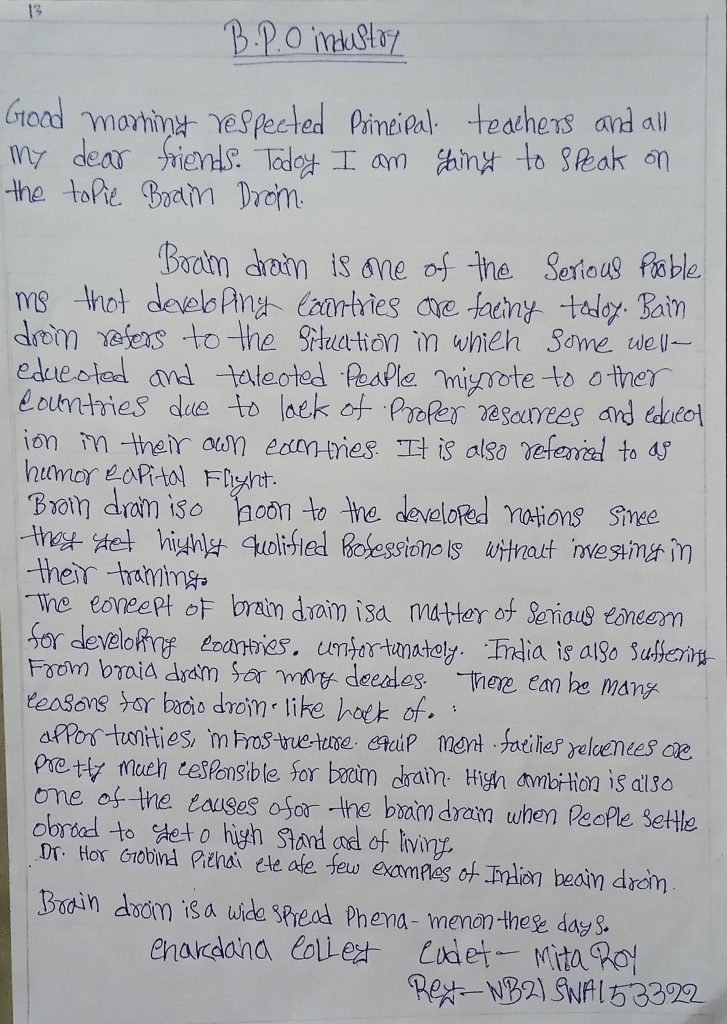 13
B.P.O industry
Good morning respected Principal. teachers and all
my dear friends. Today I am going to speak on
the topic Brain Drain.
Brain drain is one of the serious Proble
ms that developing countries are facing today. Bain
drain refers to the situation in which some well-
educated and talected People migrate to other
countries due to lack of Proper resources and educat
ion in their own countries. It is also referred to as
humar capital Flight.
Brain drain is a boon to the developed nations since
they get highly qualified Professionals without investing in
their training.
The concept of brain drain is a matter of serious concern
for developing countries. unfortunately. India is also suffering
From braid drain for many decades. There can be many
reasons for braio drain. like lack of. :
appor tunities, infrastructure. equip ment. facilies reluences are
pretty much responsible for brain drain. High ambition is also
one of the causes ofor the brain drain when People settle
abroad to get a high stand ard of living
Dr. Har Gobind Pichai etc are few examples of Indian beain drain.
Brain drain is a wide spread Phena-menon these days.
Chakdaha Colleg Cadet- Mita Roy
Reg-WB21SWA153322